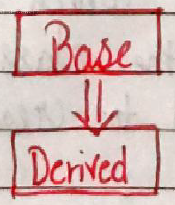 Base
Derived